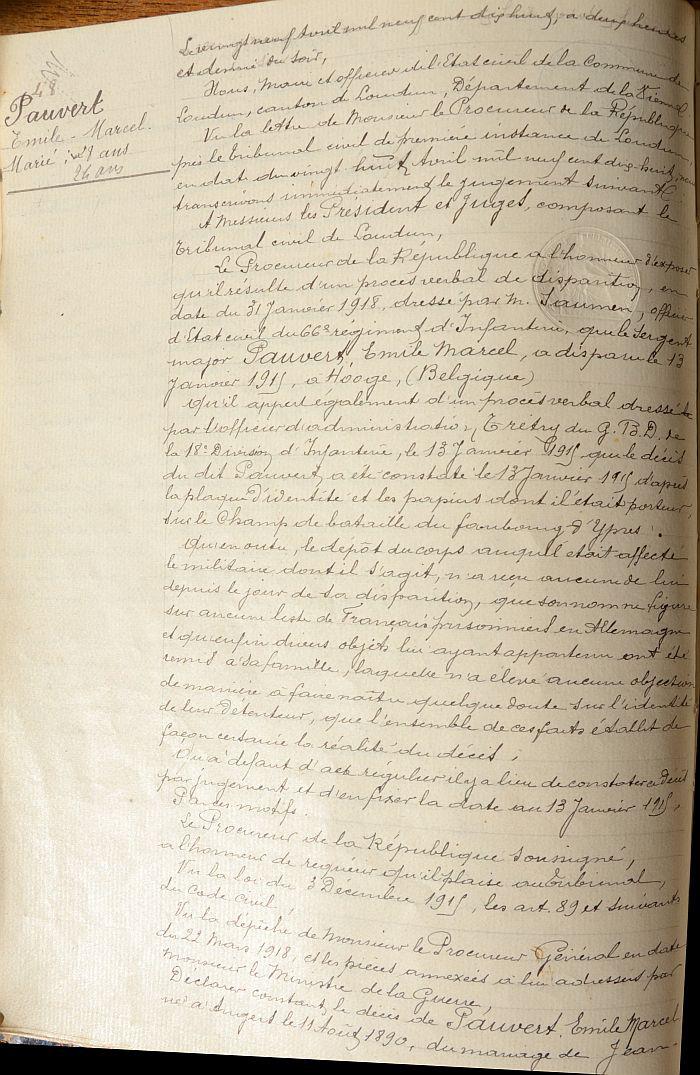 48
Pauvert
Emile-Marcel.
Marié: 27 ans
26 ans
Le vingt neuf Avril mil neuf cent dix huit, à deux heures
et demie du soir,
Nous, Maire et officier de l'Etat civil de la Commune de
Loudun, canton de Loudun, Département de la Vienne,
Vu la lettre de Monsieur le Procureur de la République
près le tribunal civil de première instance de Loudun,
en date du vingt huit Avril mil neuf cent dix huit,
transcrivons immédiatement le jugement suivant:
A Messieurs les Président et Juges, composant le
Tribunal civil de Loudun,
Le Procureur de la République a l'honneur d'exposer
qu'il résulte d'un procès verbal de disparition, en
date du 31 Janvier 1918, dressé par M. Jaumen, officier
d'Etat civil du 66e régiment d'Infanterie, que le Sergent
major Pauvert, Emile Marcel, a disparu le 13
Janvier 1915, à Hooge, (Belgique)
Qu'il appert également d'un procès verbal dressé
par l'officier d'administration Trétry du G.B.D. de
la 18e Division d'Infanterie, le 13 Janvier 1915 que le décès
du dit Pauvert, a été constaté le 13 Janvier 1915 d'après
la plaque d'identité et les papiers dont il était porteur,
sur le Champ de bataille du faubourg d'Ypres.
Qu'en outre, le dépôt du corps auquel était affecté
le militaire dont il s'agit, n'a reçu aucune de lui
depuis le jour de sa disparition, que son nom ne figure
sur aucune liste de Français prisonniers en Allemagne
et qu'enfin divers objets lui ayant appartenu ont été
remis à sa famille, laquelle n'a élevé aucune objection
de manière à faire naître quelque doute sur l'identité
de leur détenteur, que l'ensemble de ces faits établit de
façon certaine la réalité du décès;
Qu'à défaut d'acte régulier il y a lieu de constater ce décès
par jugement et d'en fixer la date au 13 Janvier 1915,
Par ces motifs.
Le Procureur de la République soussigné,
a l'honneur de requérir qu'il plaise au Tribunal,
Vu la loi du 3 Décembre 1915, les art. 89 et suivants
du Code civil,
Vu la dépêche de Monsieur le Procureur Général en date
du 22 Mars 1918, et les pièces annexées à lui adressées par
Monsieur le Ministre de la Guerre,
Déclarer constant, le décès de Pauvert, Emile Marcel
né à Angers le 11 Août 1890, du mariage de Jean-